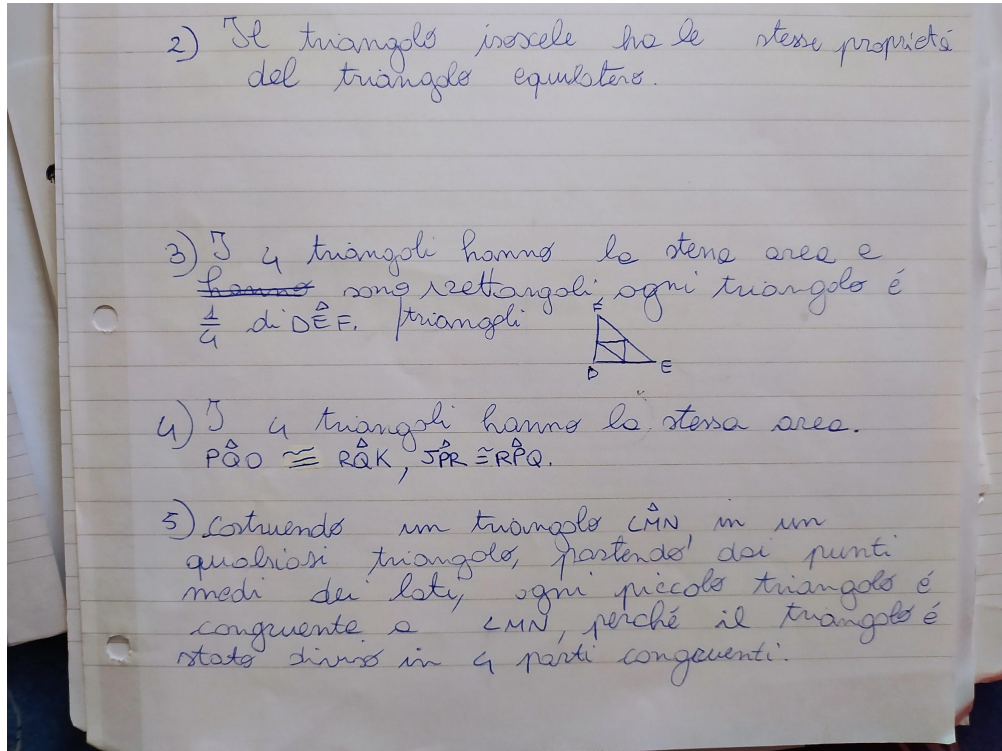 2) Il triangolo isoscele ha le stesse proprietá
del triangolo equilatero.
3) I 4 triangoli hanno la stessa area e
hanno sono rettangoli, ogni triangolo é
1/4 di DÊF. triangoli
F
D E
4) I 4 triangoli hanno la stessa area.
PQ̂O ≅ RQ̂K, JP̂R ≅ RP̂Q.
5) Costruendo un triangolo LM̂N in un
qualsiasi triangolo, partendo dai punti
medi dei lati, ogni piccolo triangolo é
congruente a LMN, perché il triangolo é
stato diviso in 4 parti congruenti.